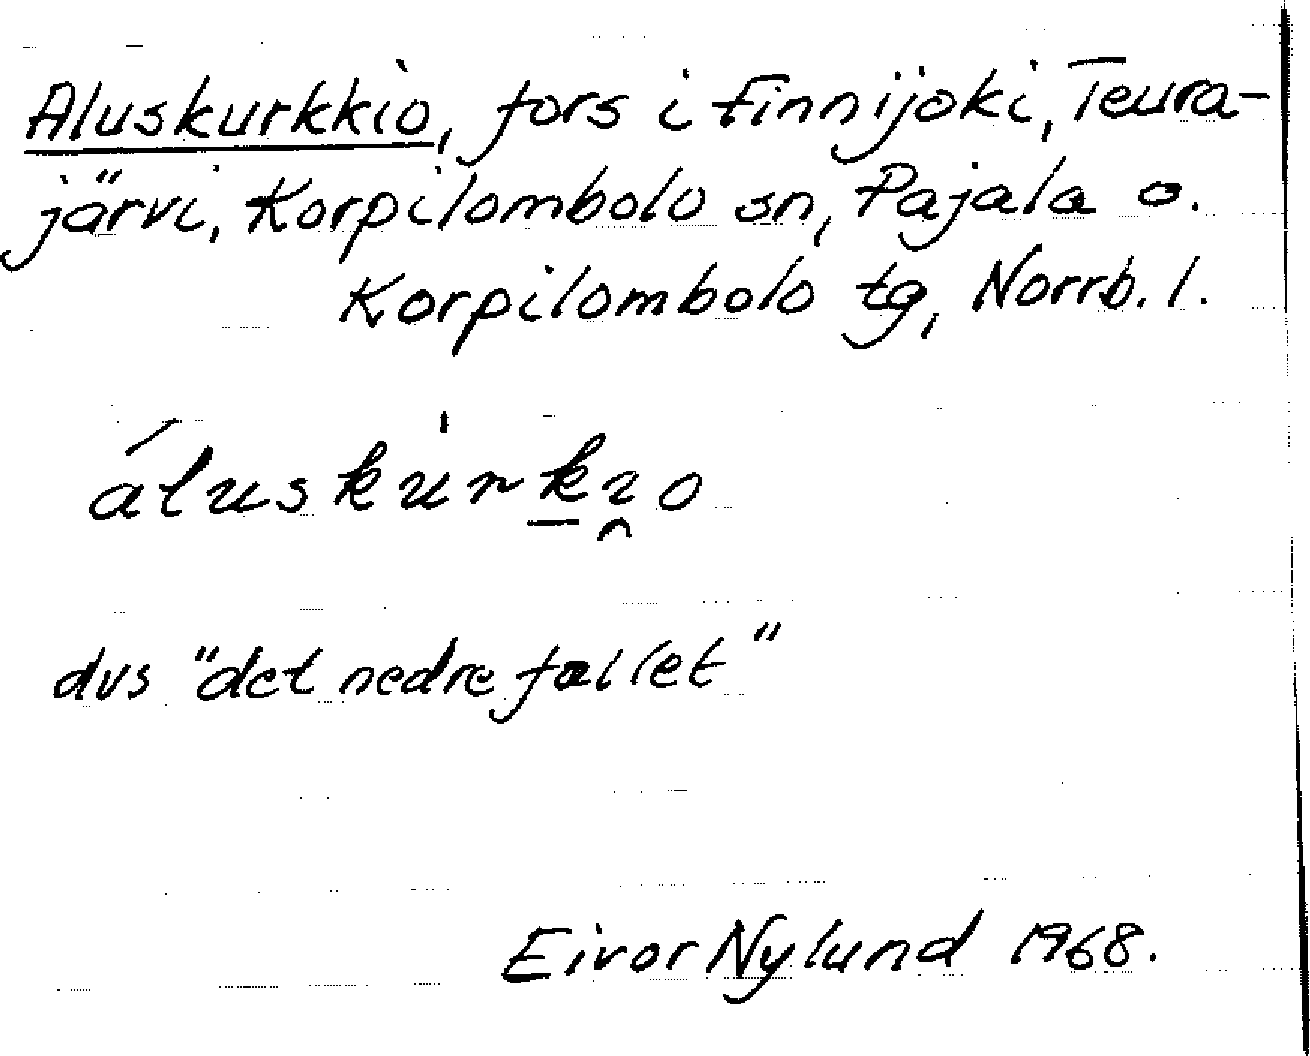 Aluskurkkio, fors i Finnijoki, Teura-
järvi, Korpilombolo sn, Pajala o.
Korpilombolo tg, Norrb. l.
áluskùrk̲ı̯o
dvs "det nedre fallet"
Eivor Nylund 1968.